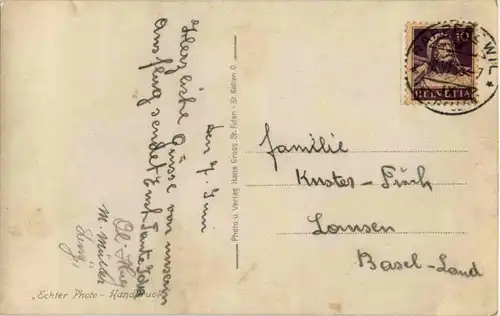 den 7. Juni
Herzliche Grüsse von unserm
Ausflug sendet Euch Tante
M. Müller
familie
Kuster-
Lausen
Basel-Land
10
HELVETIA
WIL
Photo u Verlag Hans Gross, St. Fiden - St. Gallen O.
„Echter Photo - Handdruck"